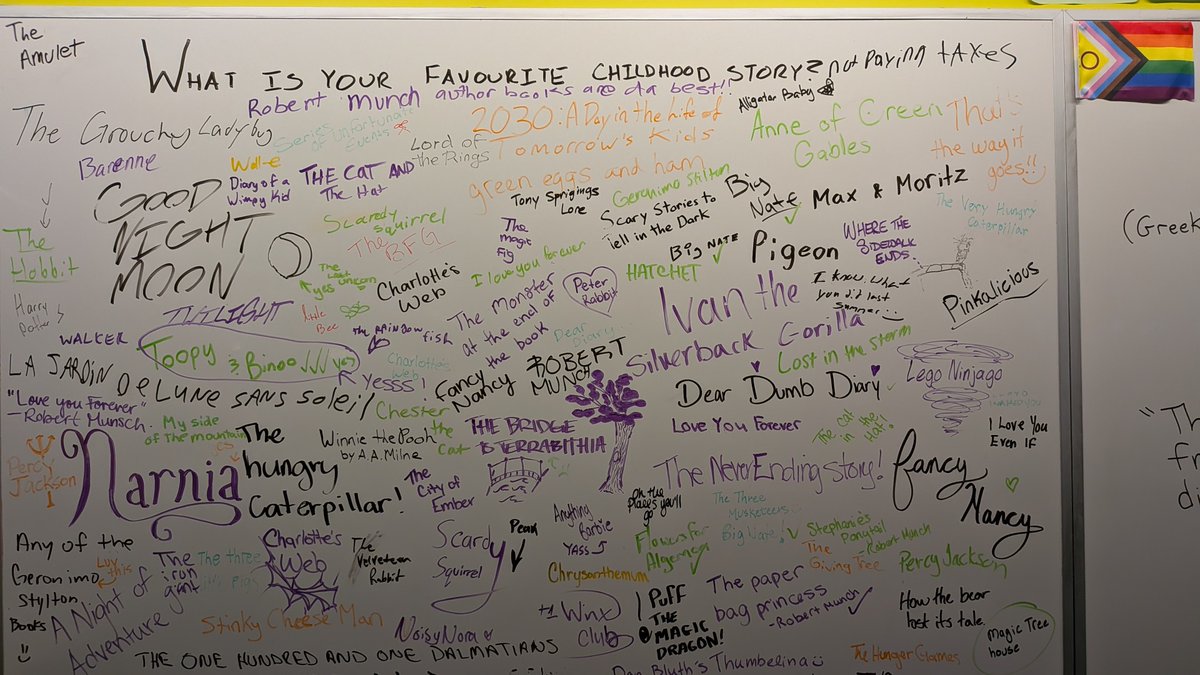 The
Amulet
WHAT IS YOUR FAVOURITE CHILDHOOD STORY?
not paying taxes
Robert munch author books are da best!!
Alligator Baby
The Grouchy Ladybug
Series of Unfortunate
Events
Lord of
the Rings
2030: A Day in the Life of
Tomorrow's Kids
Anne of Green
Gables
That's
the way it
goes!!
Barenne
Wall-e
Diary of a
Wimpy Kid
THE CAT AND
The Hat
green eggs and ham
Geronimo Stilton
Tony Sprigings
Lore
Scary Stories to
Tell in the Dark
Big
Nate
Max & Moritz
The Very Hungry
Caterpillar
GOOD
NIGHT
MOON
Scaredy
Squirrel
The
BFG
The
magic
fig
I love you forever
Big NATE
Pigeon
WHERE THE
SIDEWALK
ENDS.
(Greek
The
Hobbit
The
Last Unicorn
yes
Charlotte's
Web
HATCHET
Peter
Rabbit
Ivan the
Silverback Gorilla
I know what
you did last
summer
Pinkalicious
Harry
Potter
TWILIGHT
little
Bee
THE RAINBOW fish
The Monster
at the end of
the book
Dear
Diary...
WALKER
Toopy & Binoo
yes
YESSS!
Charlotte's
Web
Fancy
Nancy
ROBERT
MUNCH
Lost in the storm
Lego Ninjago
LA JARDIN De LUNE SANS SOLeiL
Dear Dumb Diary
"Love you Forever"
-Robert Munsch.
My side
of The mountain
Chester
the
Cat
THE BRIDGE
TO TERABITHIA
Love You Forever
The Cat
in the
Hat!
I Love You
Even IF
"Th
fr
di
Percy
Jackson
Narnia
The
hungry
Caterpillar!
Winnie the Pooh
by A.A. Milne
The
City of
Ember
The NeverEnding Story!
Fancy
Nancy
Oh the
places you'll
go
The Three
Musketeers
Big Nate!
Any of the
Geronimo
Stylton
Books
Luv
this
The
iron
giant
The three
lil' pigs
Charlotte's
Web
The
Velveteen
Rabbit
Scardy
Squirrel
Peak
Anything
Barbie
YASS
Flowers for
Algernon
Stephanie's
Ponytail
Robert Munch
The
Giving Tree
Percy Jackson
A Night of
Adventure
Chrysanthemum
The paper
bag princess
-Robert Munch
How the bear
lost its tale.
Stinky Cheese Man
Noisy Nora
+1 Winx
Club
Puff
THE
MAGIC
DRAGON!
magic Tree
house
THE ONE HUNDRED AND ONE DALMATIANS
Don Bluth's Thumbelina
The Hunger Games